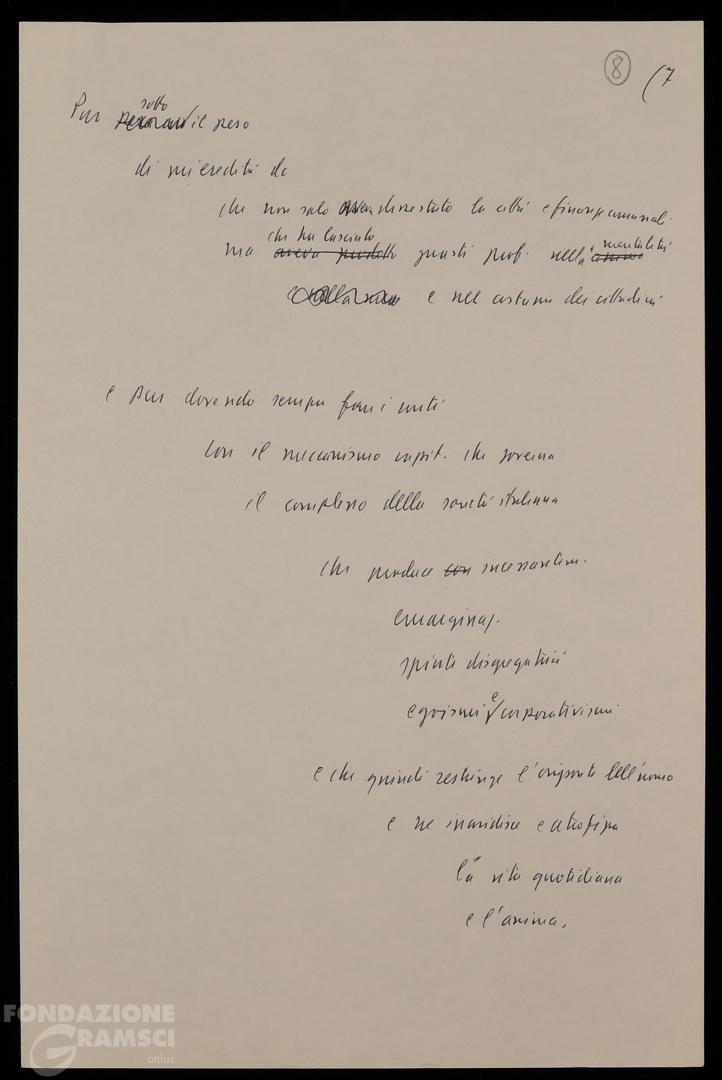 8 (7
Pur sotto il peso
di un'eredità dc
che non solo ha devastato la città e finanze comunali
ma che ha lasciato guasti prof. nella mentalità
e nel costume dei cittadini
e pur dovendo sempre fare i conti
con il meccanismo capit. che governa
il complesso della società italiana
che produce incessantem.
emarginaz.
spinte disgregatrici
egoismi e corporativismi
e che quindi restringe l'orizzonte dell'uomo
e ne inaridisce e atrofizza
la vita quotidiana
e l'anima.
FONDAZIONE
GRAMSCI
onlus